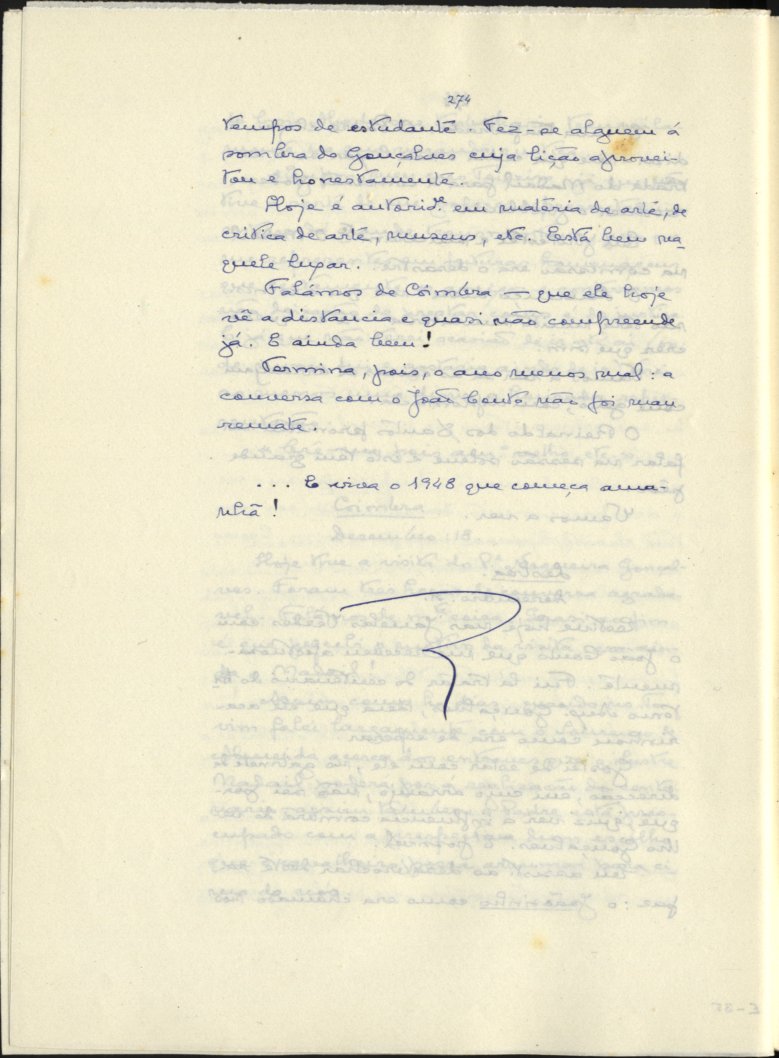 274
tempos de estudante. Fez-se alguem á
sombra do Gonçalves cuja lição aprovei-
tou e honestamente.
Hoje é autorid.e em matéria de arte, de
critica de arte, museus, etc. Está bem na-
quele lugar.
Falámos de Coimbra — que ele hoje
vê a distancia e quasi não compreende
já. E ainda bem!
Termina, pois, o ano menos mal: a
conversa com o João Couto não foi mau
remate.
... E viva o 1948 que começa ama-
nhã!